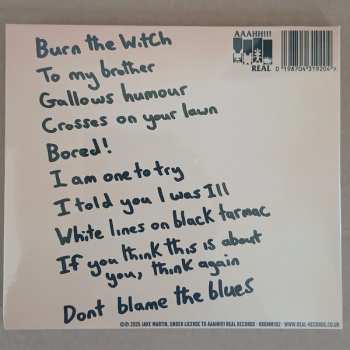 Burn the Witch
To my brother
Gallows humour
Crosses on your lawn
Bored!
I am one to try
I told you I was Ill
White lines on black tarmac
If you think this is about
you, think again
Dont blame the blues
AAAHH!!!
REAL
0 198704 319204
©℗ 2025 JAKE MARTIN, UNDER LICENSE TO AAAHH!!! REAL RECORDS
REAL-RECORDS.CO.UK